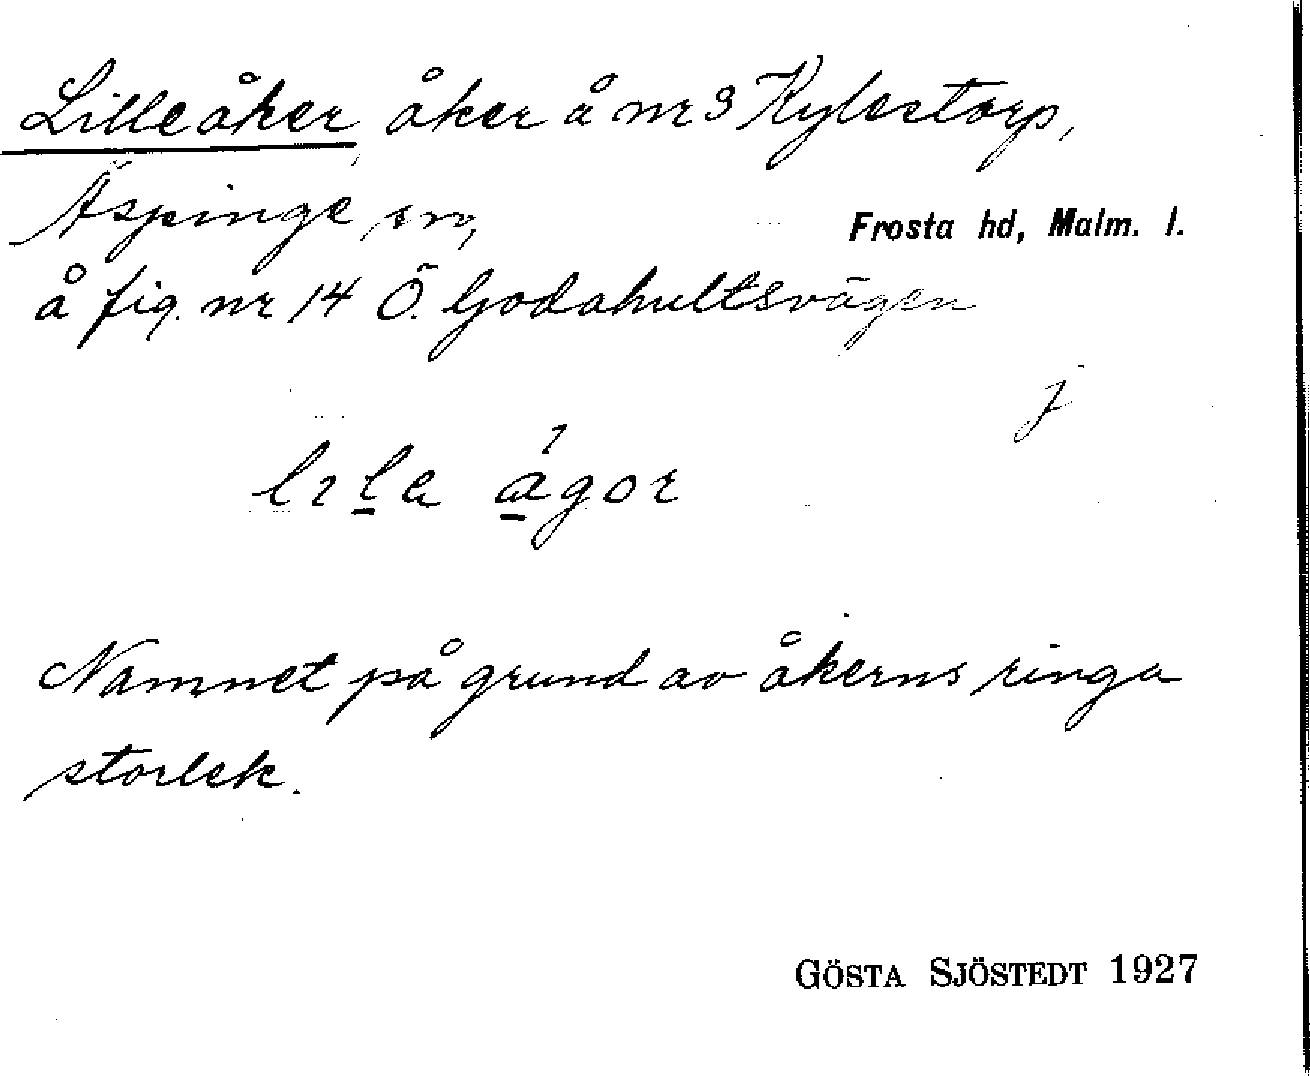 Lilleåker, åker å nr 3 Kylestorp,
Äspinge sn, Frosta hd, Malm. l.
å fig. nr 14 Ö. ljodahultsvägen
j
Namnet på grund av åkerns ringa
storlek.
GÖSTA SJÖSTEDT 1927